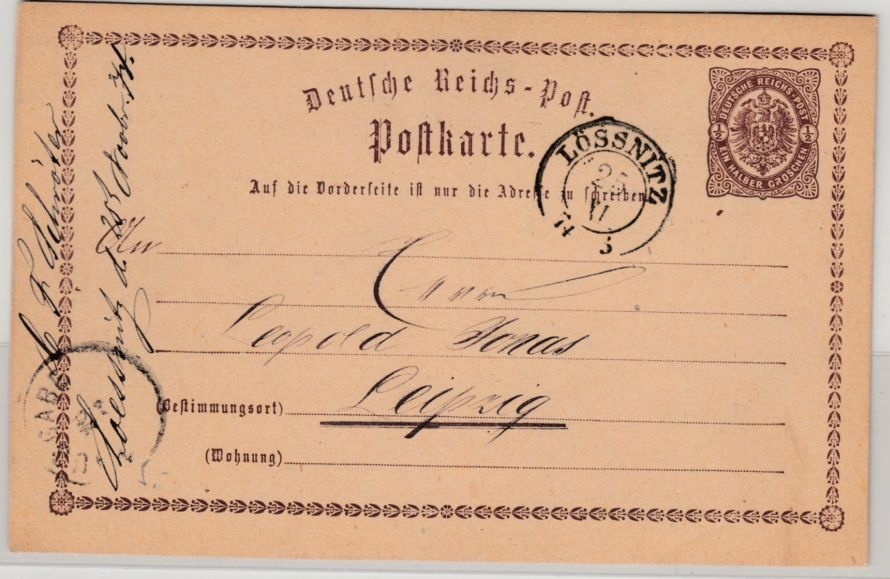 Deutsche Reichs-Post.
Postkarte.
Auf die Vorderseite ist nur die Adresse zu schreiben.
DEUTSCHE REICHS-POST
½ ½
EIN HALBER GROSCHEN
LÖSSNITZ
25
11
74 3
An
Herrn
Leopold Jonas
(Bestimmungsort) Leipzig
(Wohnung)
Loessnitz d. 25 Novbr. 74.